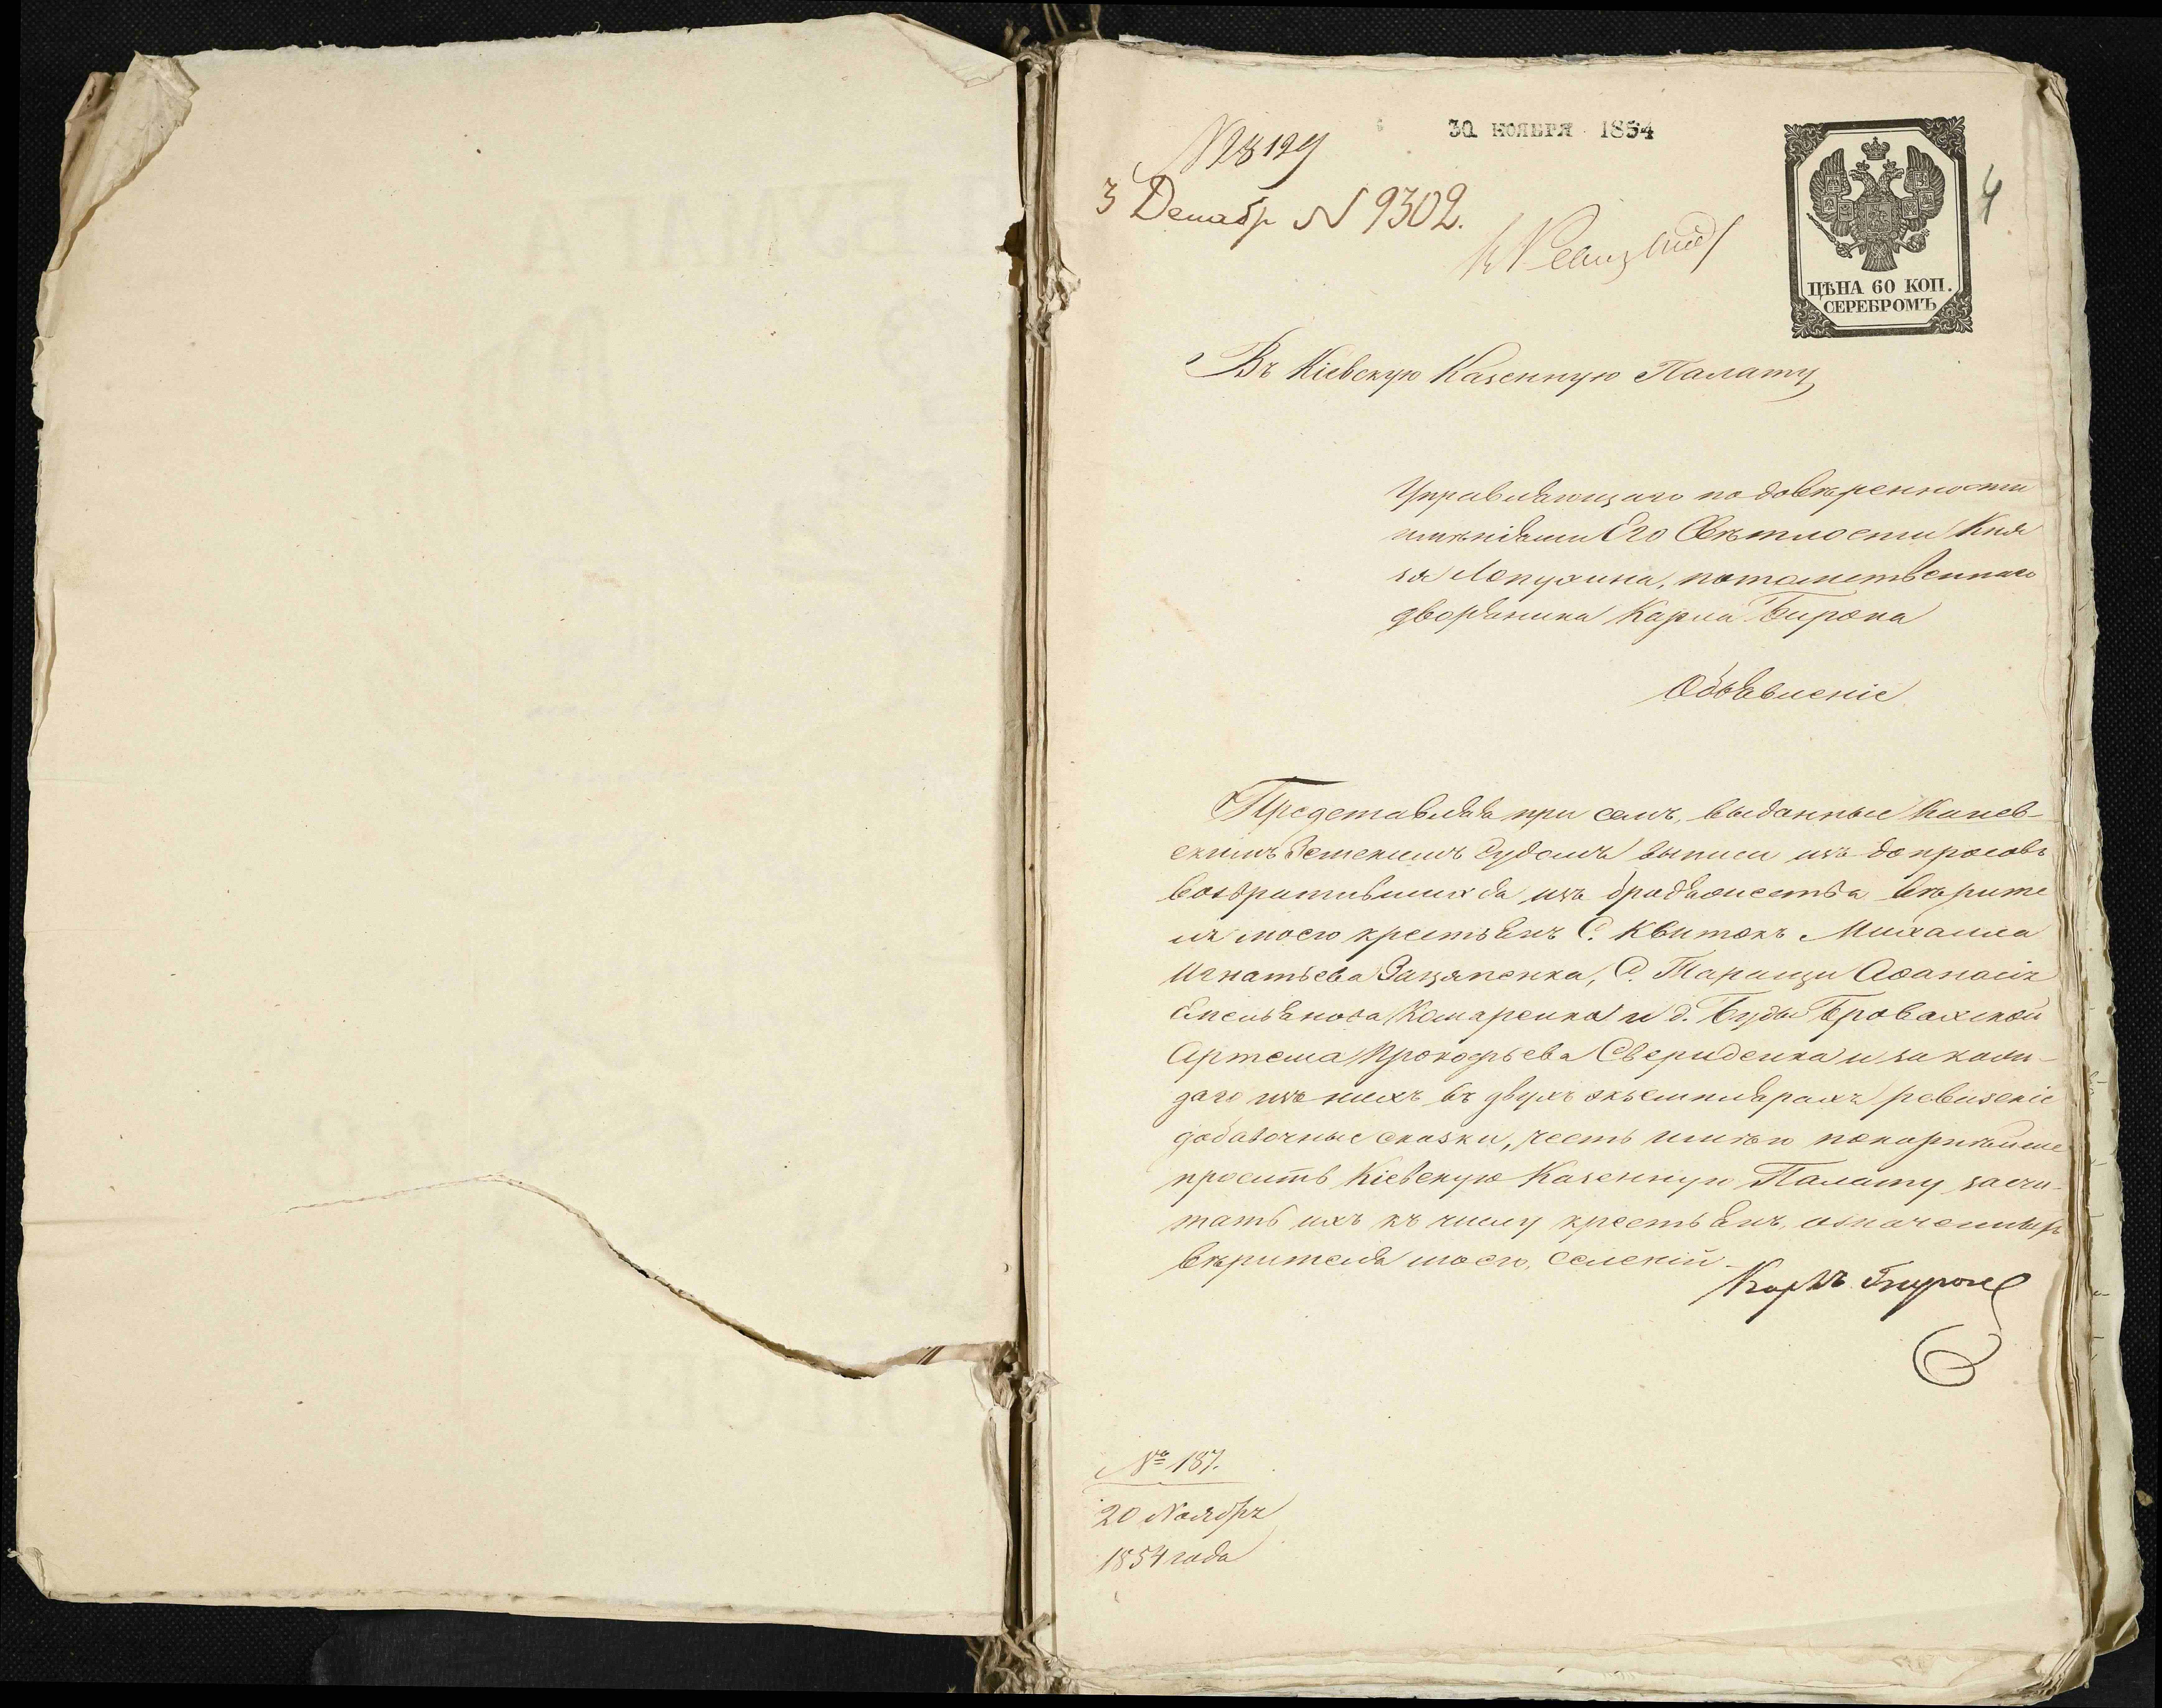 30 НОЯБРЯ 1854
№ 8129
3 Декабр № 9302.
4
ЦѢНА 60 КОП.
СЕРЕБРОМЪ
Въ Кіевскую Казенную Палату
Управляющаго по довѣренности
имѣніями Его Свѣтлости Кня
зя Лопухина, потомственнаго
дворянина Карла Бирона
Объявленіе
Представляя при семъ, выданные Канев-
скимъ Земскимъ Судомъ выписи изъ допросовъ
возвратившихся изъ бродяжества вѣрите
ля моего крестьянъ С. Квитокъ Михаила
Игнатьева Зацяпенка, С. Таращи Афанасія
Емельянова Комаренка и д. Буды Бровахской
Артема Прокофьева Свериденка и за каж-
даго изъ нихъ въ двухъ экземплярахъ ревизскіе
добавочные сказки, честь имѣю покорнѣйше
просить Кіевскую Казенную Палату зачи-
тать ихъ къ числу крестьянъ, означенныхъ
вѣрителя моего, селеній.
Карлъ Биронъ
№ 187.
20 Ноября
1854 года